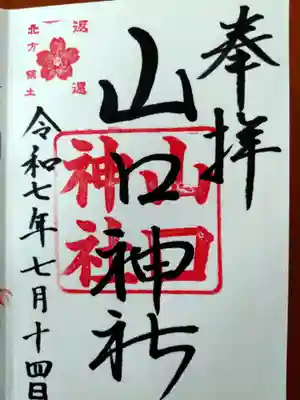 奉拝
山口神社
山口神社
返還
北方領土
令和七年七月十四日